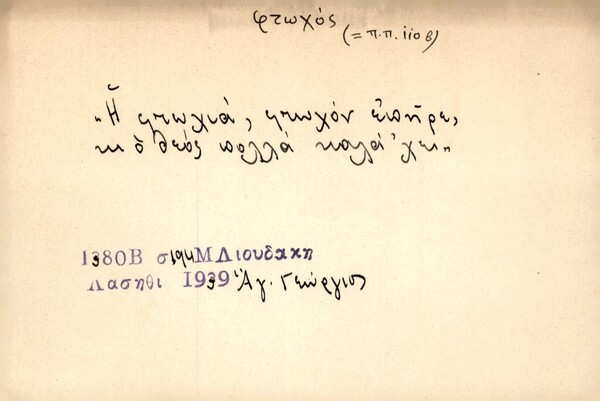 φτωχός
(= π.π. 110 β)
„Ἡ φτωχιά, φτωχόν ἐπῆρε,
κι ὁ θεός πολλά καλά 'χει„
1380Β σ194 Μ Λιουδακη
Λασηθι 1939 Ἁγ. Γεώργιος